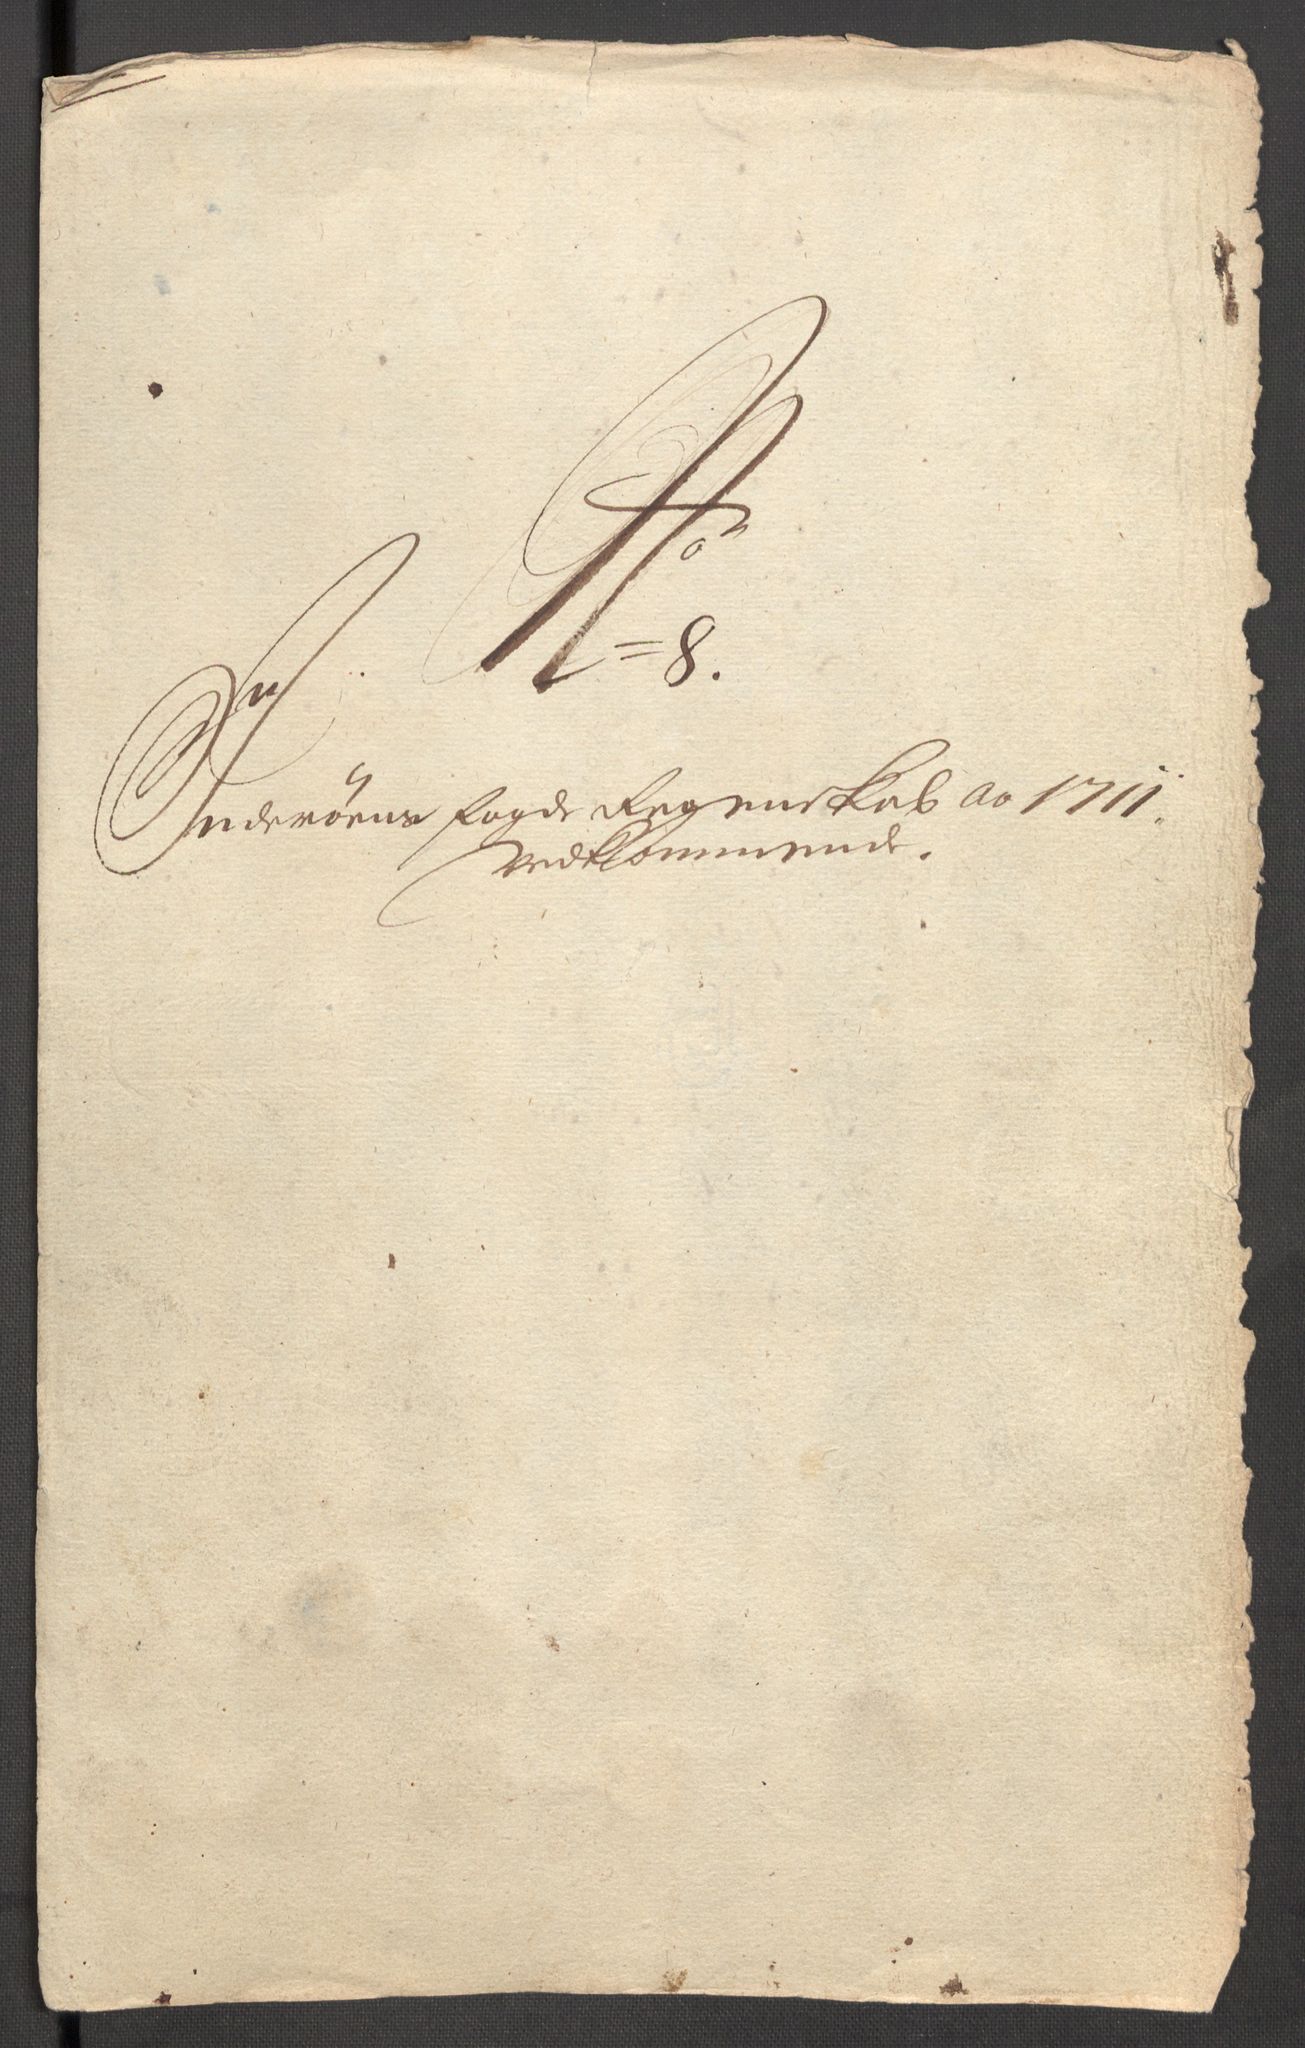 No
= 8.
Inderøens fogde Regenskab ao 1711.
vedkommende.